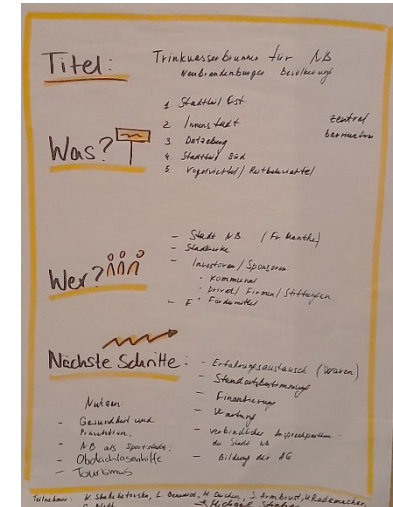 Titel: Trinkwasserbrunnen für NB
Neubrandenburger Bevölkerung
Was?
1 Stadtteil Ost
2 Innenstadt
3 Datzeberg
4 Stadtteil Süd
5 Vogelviertel /
zentral
barrierefrei
Wer?
- Stadt NB (Fr Manthe)
- Stadtwerke
- Investoren / Sponsoren
- kommunal
- privat / Firmen / Stiftungen
- Fördermittel
Nächste Schritte:
- Erfahrungsaustausch (Waren)
- Standortbestimmung
- Finanzierung
- Wartung
- verbindlicher Ansprechpartner
der Stadt NB
- Bildung der AG
Nutzen:
- Gesundheit und
Prävention,
- NB als Sportstadt,
- Obdachlosenhilfe
- Tourismus
Teilnehmer: J. Armbrust, Rademacher,
Michael